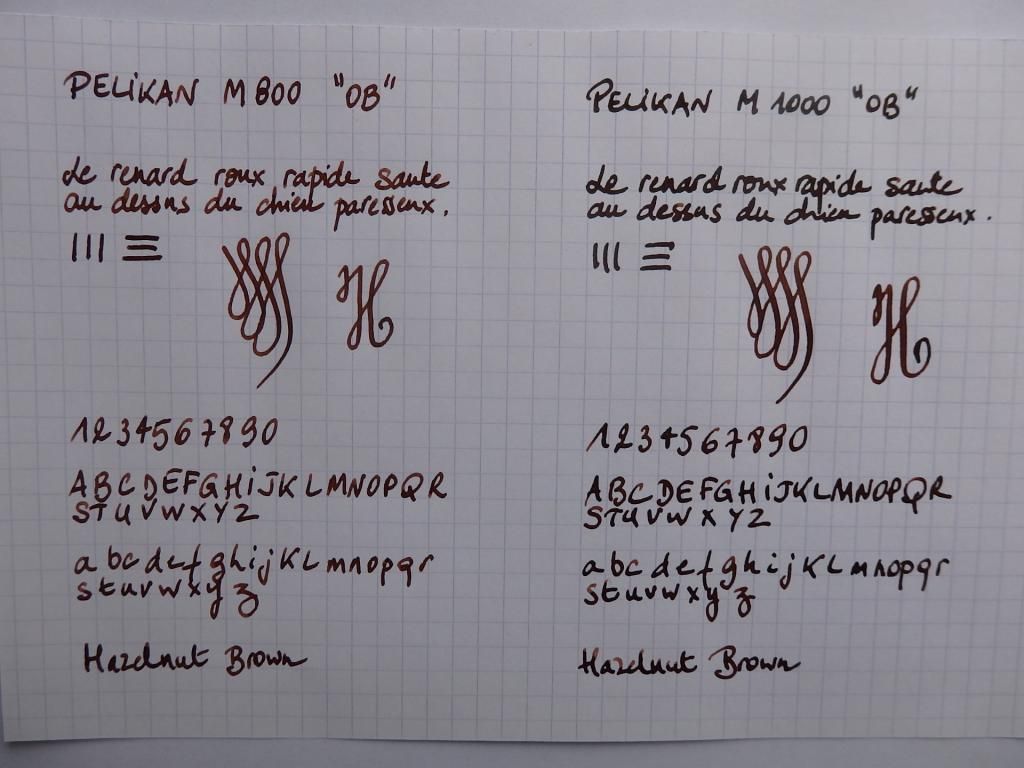 PELiKAN M800 "OB"
Le renard roux rapide saute
au dessus du chien paresseux.
H
1234567890
ABCDEFGHiJKLMNOPQR
STUVWXYZ
abcdefghijklmnopqr
stuvwxyz
Hazelnut Brown
PELiKAN M1000 "OB"
Le renard roux rapide saute
au dessus du chien paresseux.
H
1234567890
ABCDEFGHiJKLMNOPQR
STUVWXYZ
abcdefghijklmnopqr
stuvwxyz
Hazelnut Brown